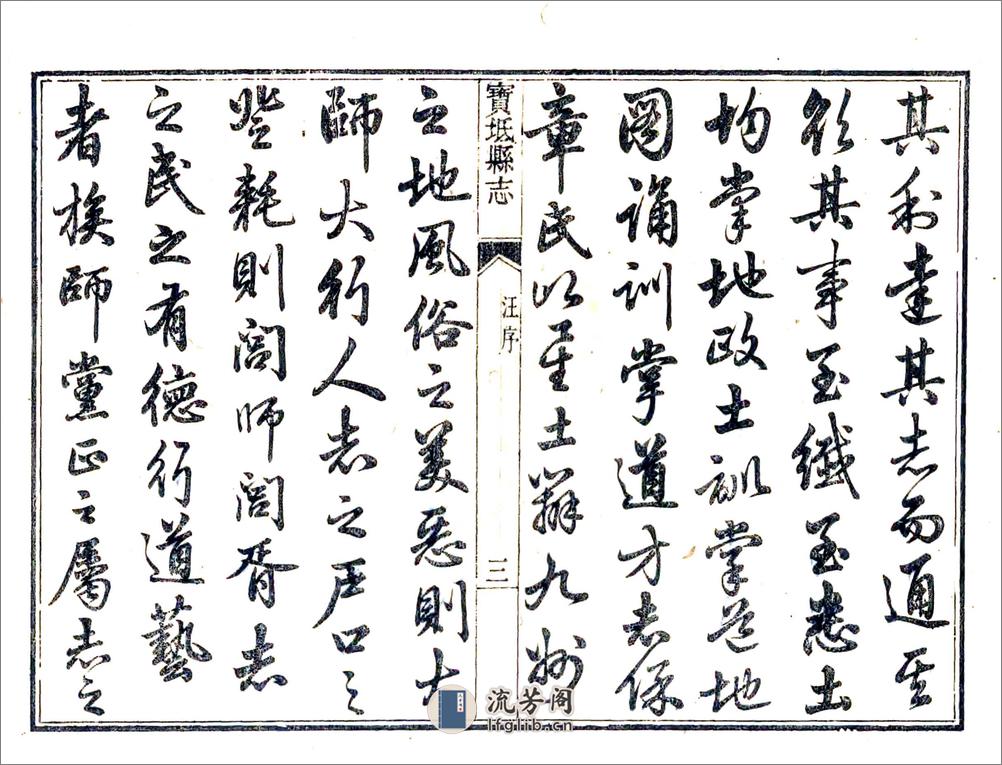 其利達其志而通其
欲其事至纖至悉土
均掌地政土訓掌道地
圖誦訓掌道方志保
章氏以星土辨九州
寶坻縣志
汪序
三
之地風俗之美惡則大
師大行人志之戶口之
登耗則閭師閭胥志
之民之有德行道藝
者族師黨正之屬志之
流芳阁
lfglib.cn